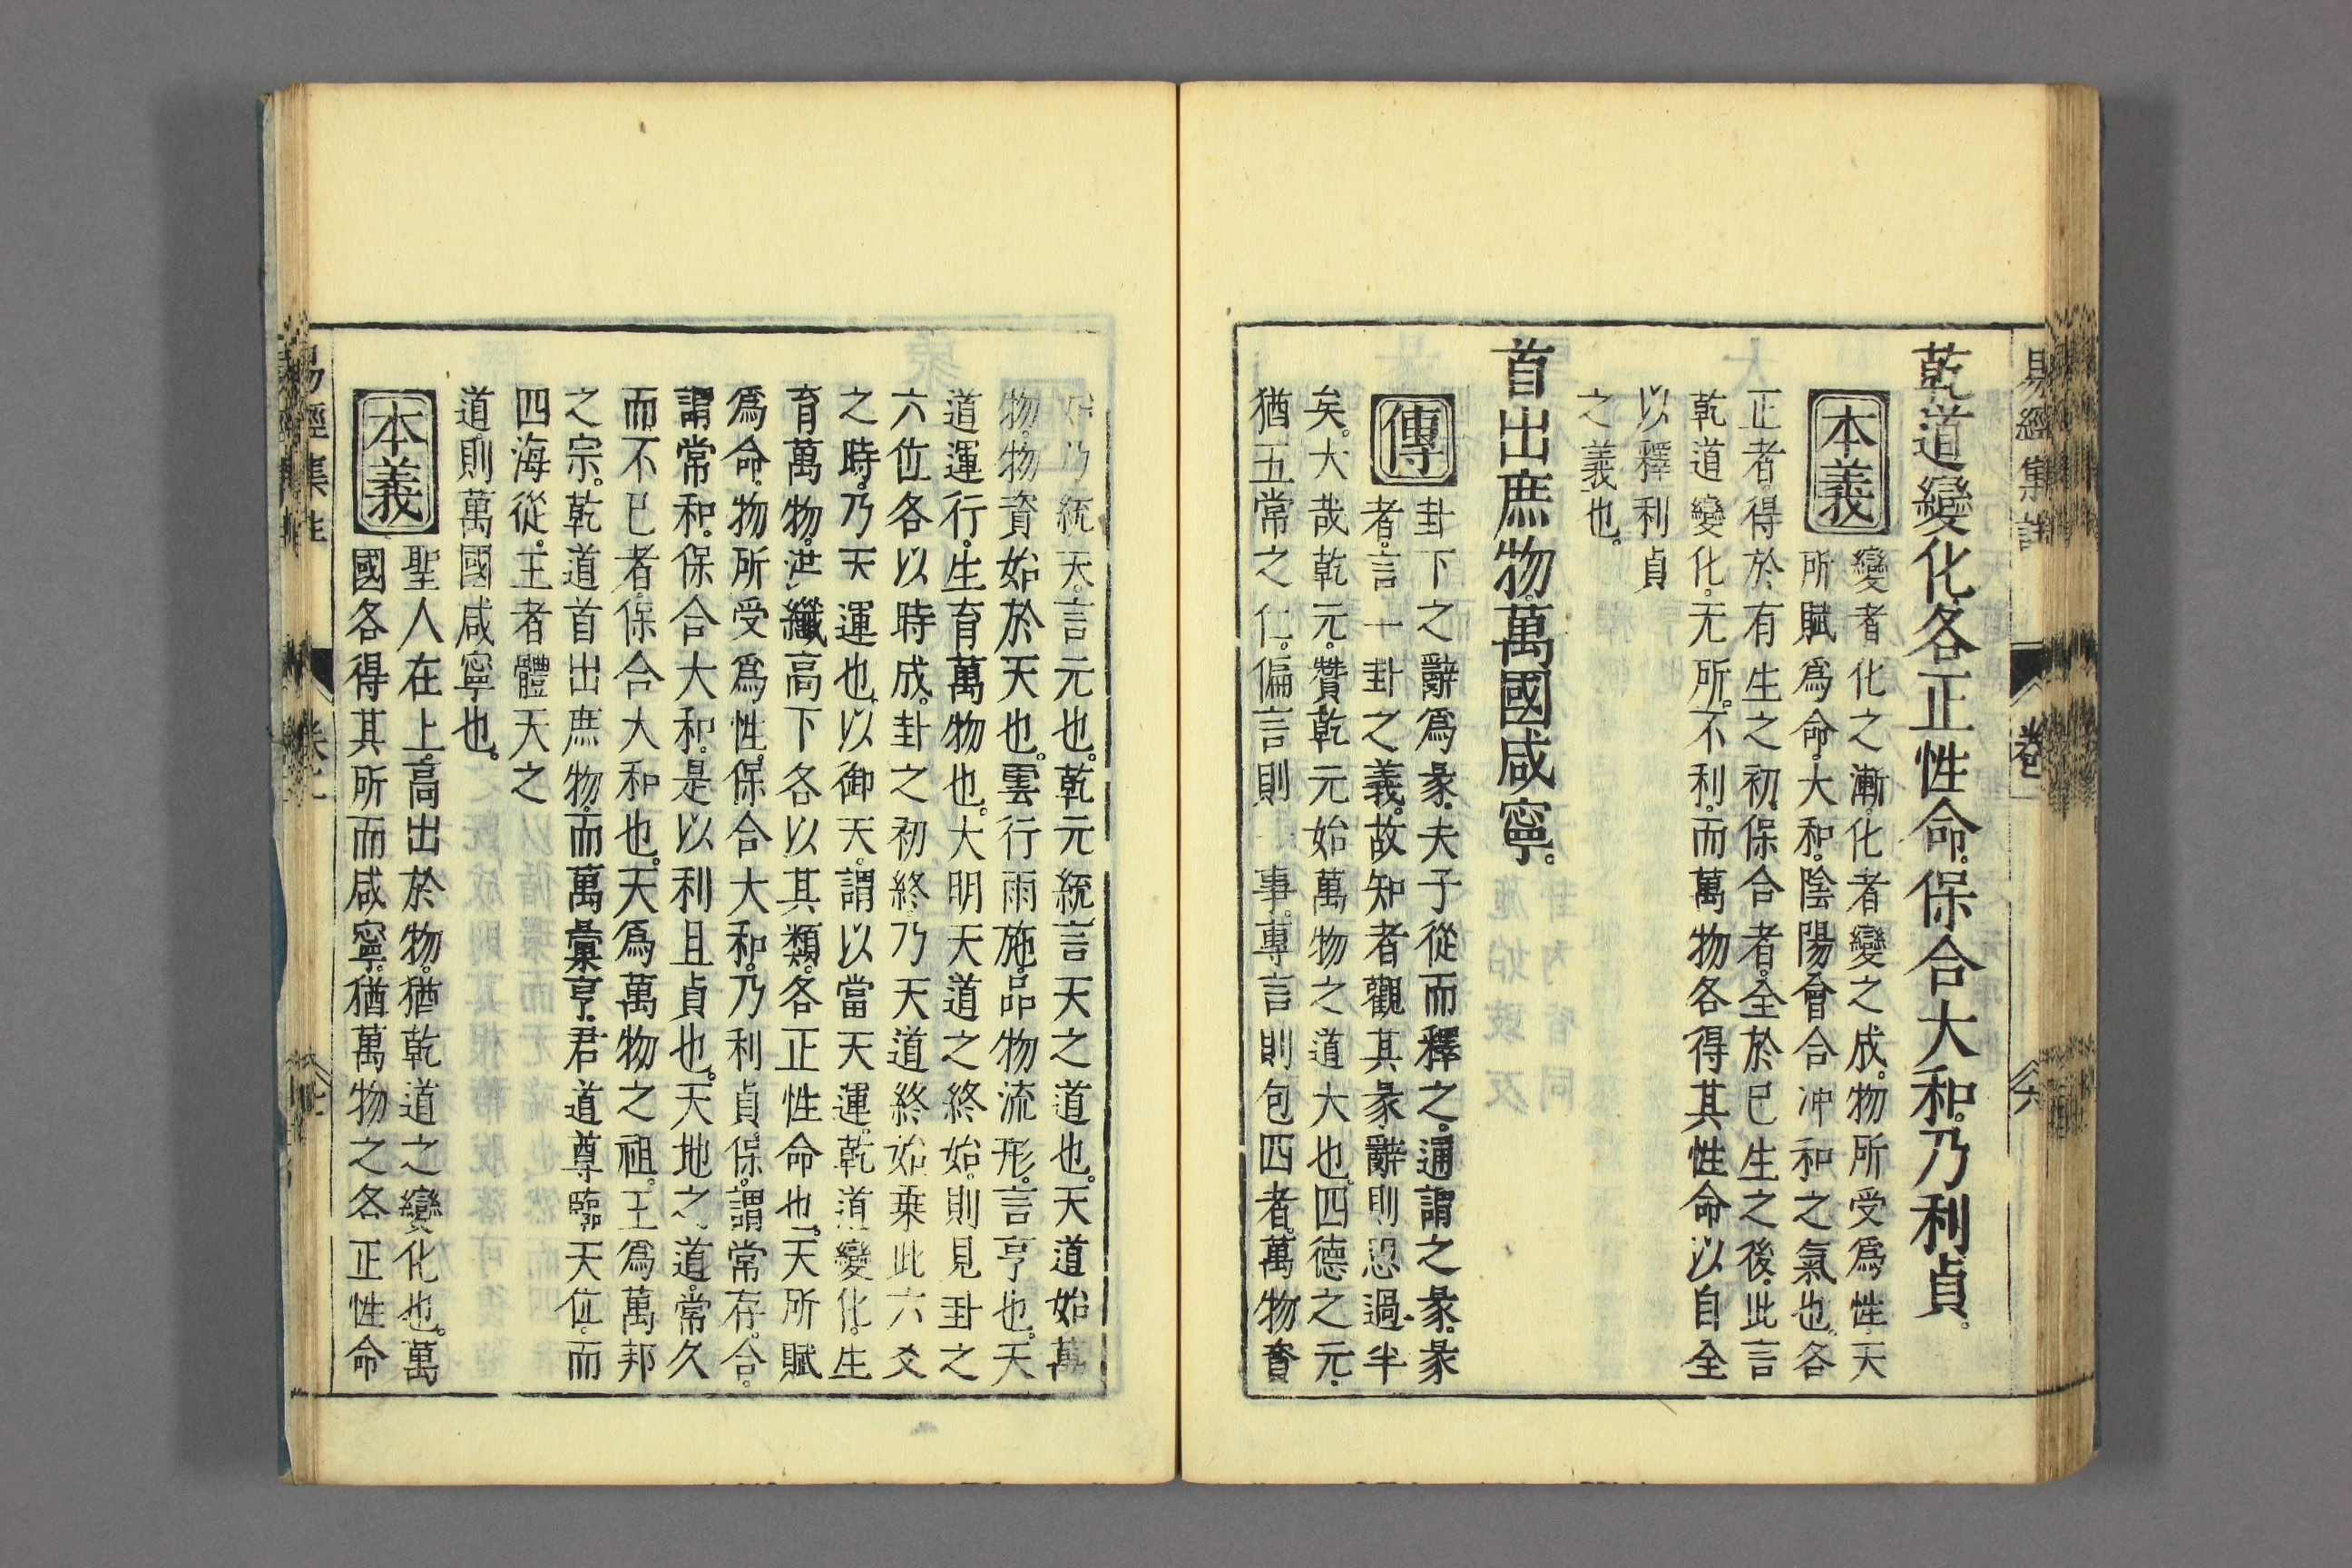 易經集註
卷
六
乾道變化各正性命。保合大和。乃利貞。
本義
變者化之漸。化者變之成。物所受爲性。天
所賦爲命。大和。陰陽會合冲和之氣也。各
正者。得於有生之初。保合者。全於已生之後。此言
乾道變化。无所不利。而萬物各得其性命以自全
以釋利貞
之義也。
首出庶物。萬國咸寧。
傳
卦下之辭爲彖。夫子從而釋之。通謂之彖。彖
者。言一卦之義。故知者觀其彖辭則思過半
矣。大哉乾元。贊乾元始萬物之道大也。四德之元。
猶五常之仁。偏言則 事。專言則包四者。萬物資
始乃統天。言元也。乾元統言天之道也。天道始萬
物。物資始於天也。雲行雨施。品物流形。言亨也。天
道運行。生育萬物也。大明天道之終始。則見卦之
六位各以時成。卦之初終乃天道終始。乘此六爻
之時。乃天運也。以御天。謂以當天運。乾道變化。生
育萬物。洪纖高下各以其類。各正性命也。天所賦
爲命。物所受爲性。保合大和。乃利貞。保。謂常存。合。
謂常和。保合大和。是以利且貞也。天地之道。常久
而不已者。保合大和也。天爲萬物之祖。王爲萬邦
之宗。乾道首出庶物。而萬彙亨。君道尊臨天位。而
四海從。王者體天之
道。則萬國咸寧也。
本義
聖人在上。高出於物。猶乾道之變化也。萬
國各得其所而咸寧。猶萬物之各正性命
易經集註
卷
七